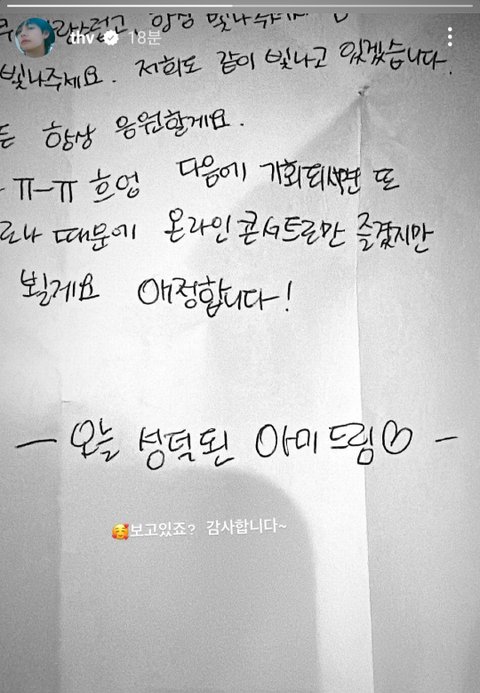 thv 18분
빛나주세요. 저희도 같이 빛나고 있겠습니다.
항상 응원할게요.
ㅠ-ㅠ 흐엉 다음에 기회되시면 또
때문에 온라인 콘서트로만 즐겼지만
뵐게요 애정합니다!
— 오늘 성덕된 아미드림♡ —
🥰보고있죠? 감사합니다~